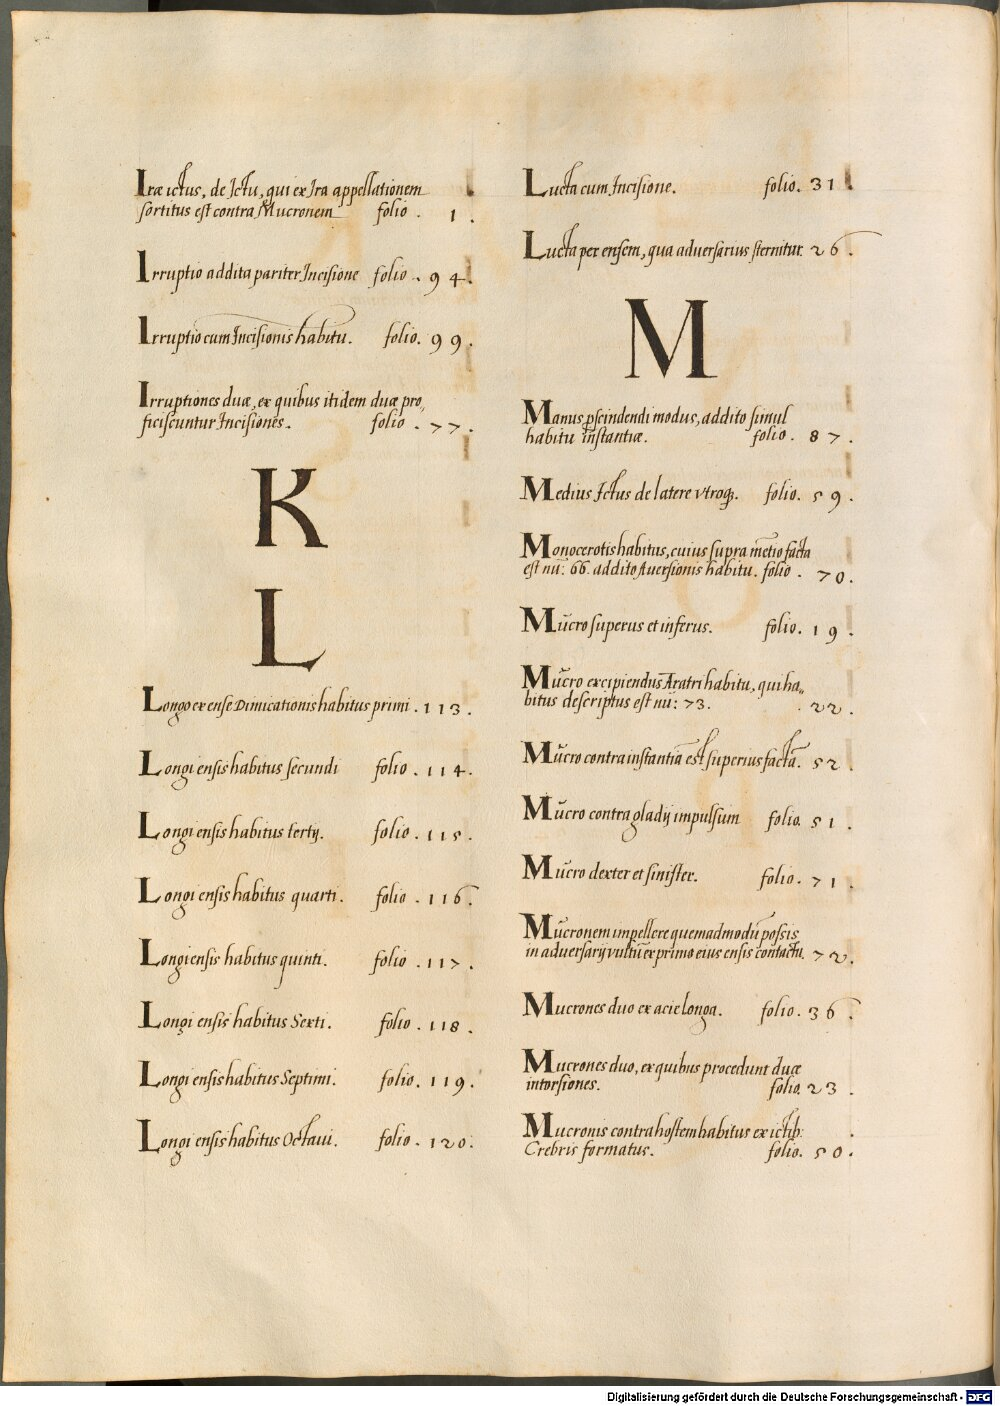 Iræ ictus, de Ictu, qui ex Ira appellationem
sortitus est contra Mucronem folio . 1 .
Irruptio addita pariter Incisione folio . 94.
Irruptio cum Incisionis habitu. folio. 99.
Irruptiones duæ, ex quibus itidem duæ pro„
ficiscuntur Incisiones. folio . 77.
K
L
Longo ex ense Dimicationis habitus primi . 113.
Longi ensis habitus secundi folio . 114.
Longi ensis habitus tertij. folio . 115.
Longi ensis habitus quarti. folio . 116.
Longi ensis habitus quinti. folio . 117.
Longi ensis habitus Sexti. folio . 118.
Longi ensis habitus Septimi. folio. 119.
Longi ensis habitus Octaui. folio . 120.
Lucta cum Incisione. folio. 31.
Lucta per ensem, qua adversarius sternitur. 26.
M
Manus pscindendi modus, addito simul
habitu instantiæ. folio. 87.
Medius Ictus de latere vtroq. folio. 59.
Monocerotis habitus, cuius supra mẽtio facta
est nu: 66. addito Auersionis habitu. folio . 70.
Mucro superus et inferus. folio. 19.
Mucro excipiendus Aratri habitu, qui ha„
bitus descriptus est nu: 73. . 22.
Mucro contra instantiã est superius factã. 52.
Mucro contra gladij impulsum folio. 51.
Mucro dexter et sinister. folio. 71.
Mucronem impellere quemadmodũ possis
in adversarij vultũ ex primo eius ensis contactu. 72.
Mucrones duo ex acie Longa. folio. 36.
Mucrones duo, ex quibus procedunt duæ
intorsiones. folio. 23.
Mucronis contra hostem habitus ex ictib:
Crebris formatus. folio. 50.
Digitalisierung gefördert durch die Deutsche Forschungsgemeinschaft - DFG